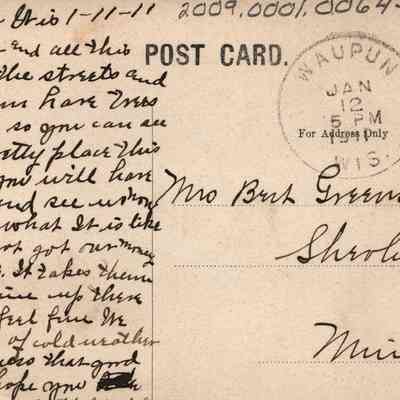 It is 1-11-11
2009.0001.0064
end all this
the streets and
have trees
so you can see
place this
you will have
and see us now
what It is like
not got our money
It takes them
up there
feel fine We
of cold weather
that good
hope you
POST CARD.
WAUPUN
JAN
12
5 PM
1911
WIS.
For Address Only
Mrs Bert Green